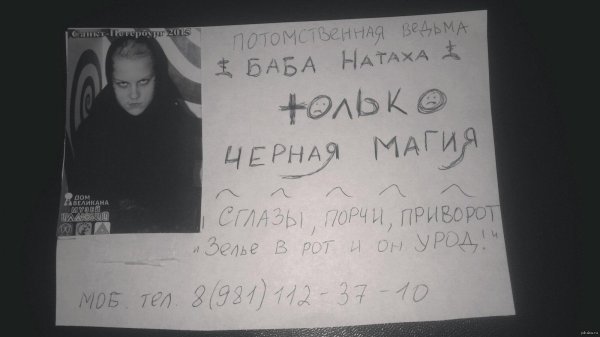 Санкт-Петербург 2015
ДОМ
ВЕЛИКАНА
МУЗЕЙ
ПОТОМСТВЕННАЯ ВЕДЬМА
БАБА НАТАХА
ТОЛЬКО
ЧЕРНАЯ МАГИЯ
СГЛАЗЫ, ПОРЧИ, ПРИВОРОТ
"Зелье в рот и он УРОД!"
МОБ. тел. 8(981)112-37-10